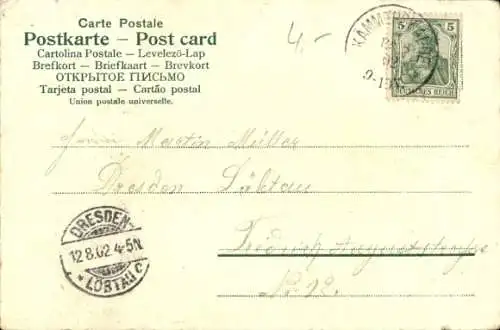 Carte Postale
Postkarte – Post card
Cartolina Postale – Levelező-Lap
Brefkort – Briefkaart – Brevkort
ОТКРЫТОЕ ПИСЬМО
Tarjeta postal – Cartão postal
Union postale universelle.
4,-
5 5
DEUTSCHES REICH
Herrn Martin Müller
Dresden Löbtau
Friedrich Auguststraße
No 12.
DRESDEN-
12 8.02 4-5N
* LÖBTAU c